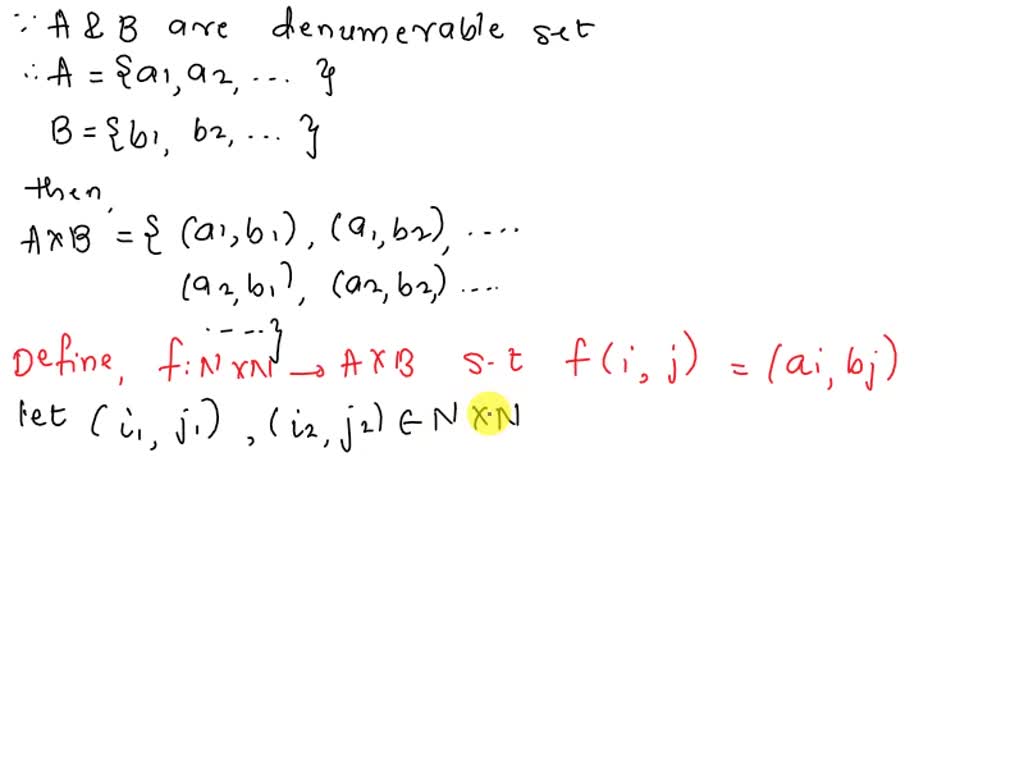 ∵ A & B are denumerable set
∴ A = {a1, a2, ... }
B = {b1, b2, ... }
then,
A×B = { (a1, b1), (a1, b2), ....
(a2, b1), (a2, b2,) ....
.---}
Define, f: N×N → A×B s.t f(i, j) = (ai, bj)
let (i1, j1), (i2, j2) ∈ N×N